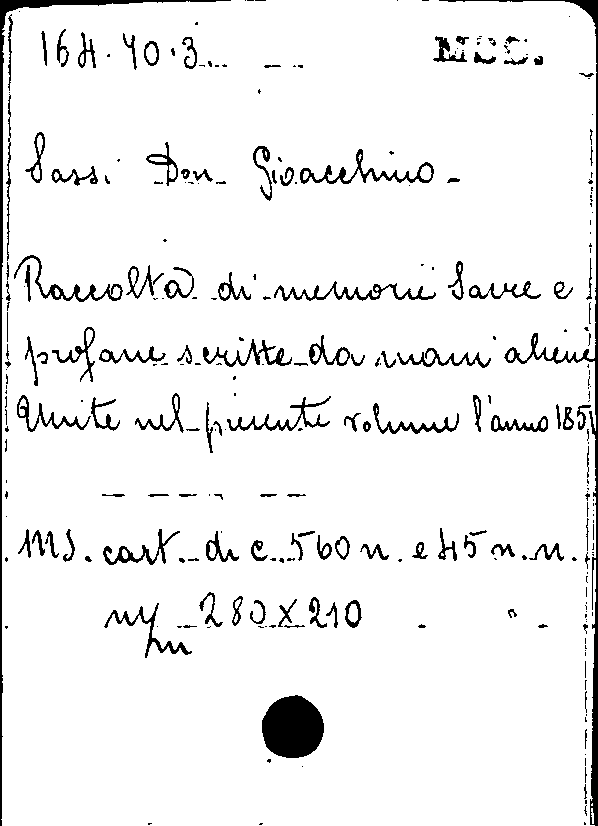 164.40.3 MSS.
Sassi Don Gioacchino -
Raccolta di memorie Sacre e
profane scritte da mani aliene
Unite nel presente volume l'anno 1851
MS. cart. di c. 560 n. e 45 n. n.
280 X 210